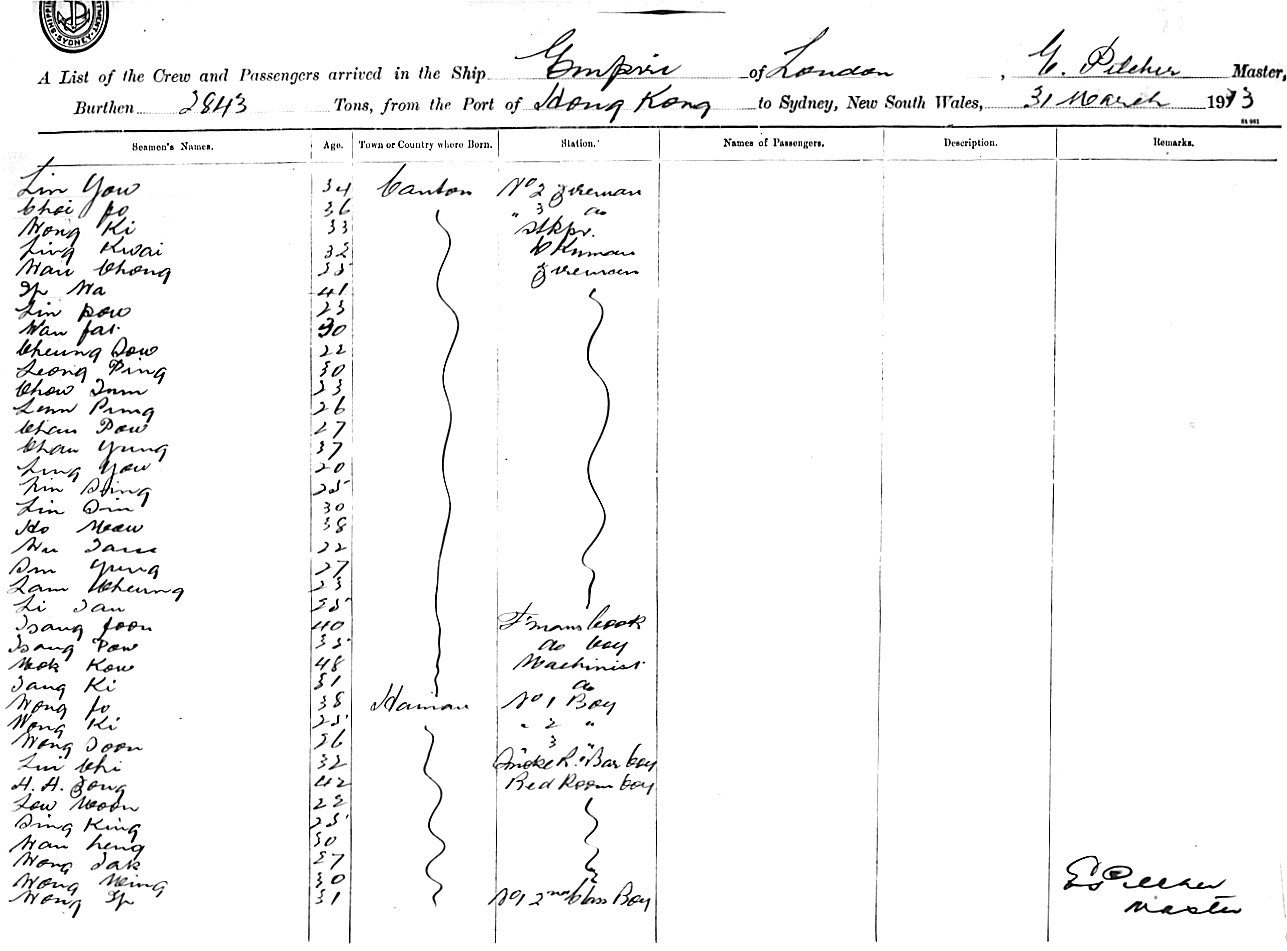 SHIPPING SYDNEY
A List of the Crew and Passengers arrived in the Ship Empire of London, E. Pilcher Master,
Burthen 2843 Tons, from the Port of Hong Kong to Sydney, New South Wales, 31 March 1913
Seamen's Names. Age. Town or Country where Born. Station. Names of Passengers. Description. Remarks.
Lin Yow 34 Canton No 2 Fireman
Choi Fo 36 " 3 do
Wong Ki 33 Stkpr.
Ling Kwai 32
Wan Chong 35 Fireman
Ip Wa 41
Lin Pow 23
Wan Fat 30
Cheung Sow 22
Leong Ping 30
Chow 23
Ping 26
Chan Pow 27
Chan Yung 37
Ling Yow 20
Sing 25
Lin Sin 30
Ho 38
22
Yung 27
Lam Cheung 23
Li Tan 25
Tsang Foon 40 F'mans Cook
Tsang Pow 35 do boy
Mok Kow 48 Machinist
Tang Ki 31 do
Wong Fo 38 Hainan No 1 Boy
Wong Ki 25 " 2 "
Wong Soon 26 3 "
Lui Chi 32 Smoke R. & Bar boy
A. H. Fong 42 Bed Room boy
Low Moon 22
Sing King 25
Wan Heng 30
Wong Tak 27
Wong Ming 30
Wong Ip 31 No 1 2nd Class Boy
E. Pilcher
Master